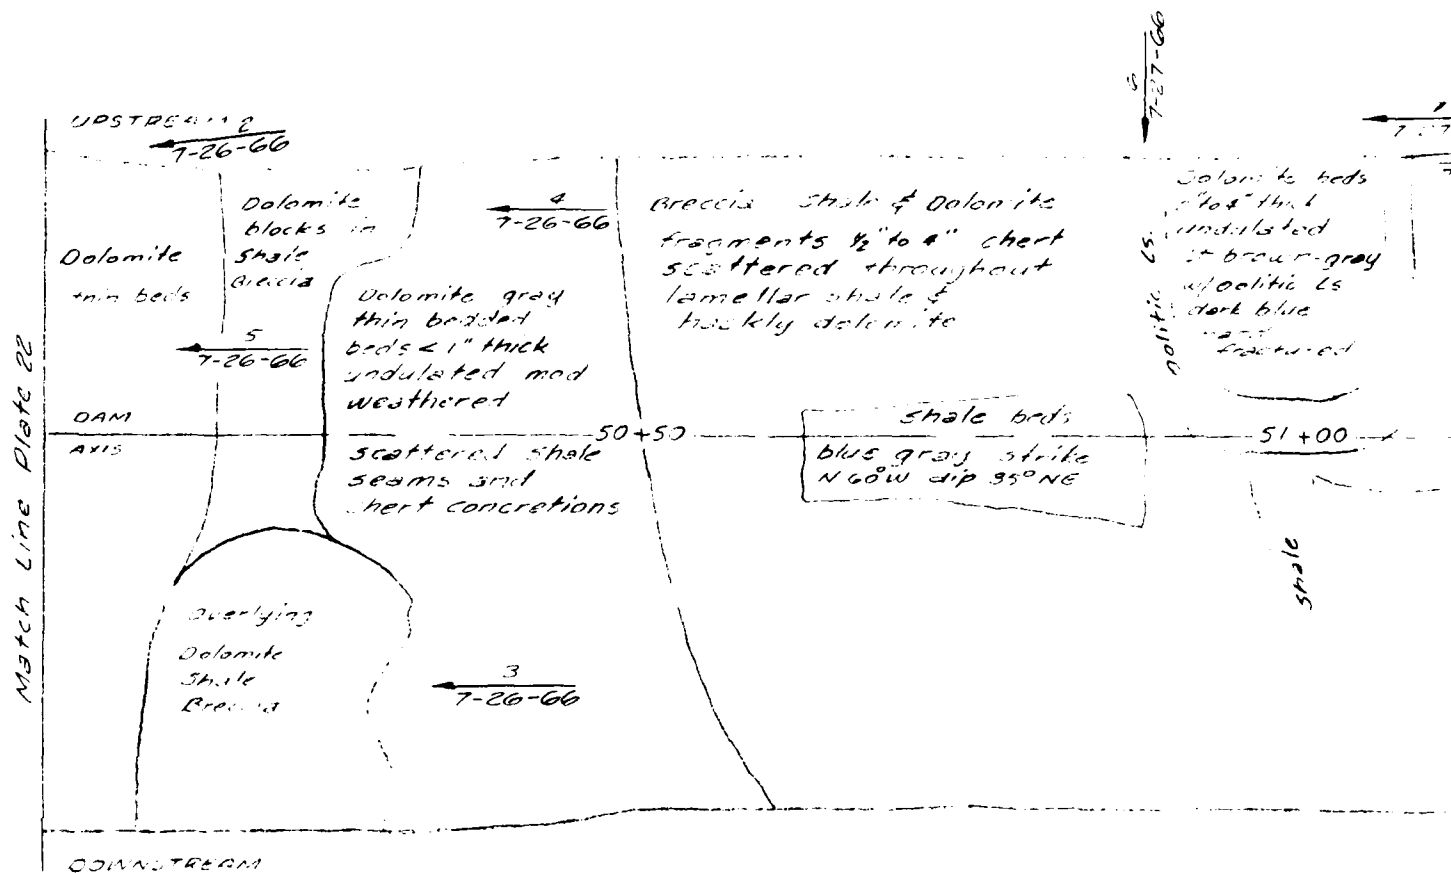 UPSTREAM
2
7-26-66
Dolomite
thin beds
Dolomite
blocks in
Shale
Breccia
5
7-26-66
4
7-26-66
Dolomite gray
thin bedded
beds < 1" thick
undulated mod
weathered
scattered shale
seams and
chert concretions
Breccia Shale & Dolomite
fragments ½" to 4" chert
scattered throughout
lamellar shale &
hackly dolomite
7-27-66
7-27
oolitic Ls.
Dolomite beds
to 4" thick
undulated
lt brown-gray
w/oolitic Ls
dark blue
fractured
Match Line Plate 22
DAM
AXIS
50+50
51+00
shale beds
blue gray strike
N 60°W dip 35° NE
shale
Overlying
Dolomite
Shale
Breccia
3
7-26-66
DOWNSTREAM